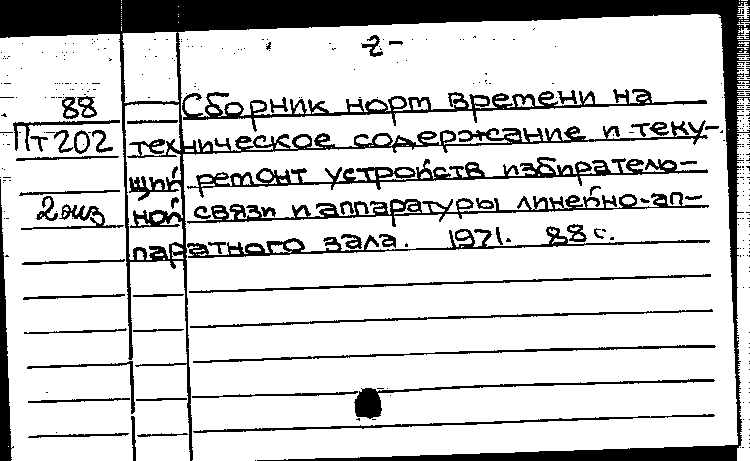 -2-
88 Сборник норм времени на
Пт202 техническое содержание и теку-
щий ремонт устройств избиратель-
2 экз ной связи и аппаратуры линейно-ап-
паратного зала. 1971. 88 с.